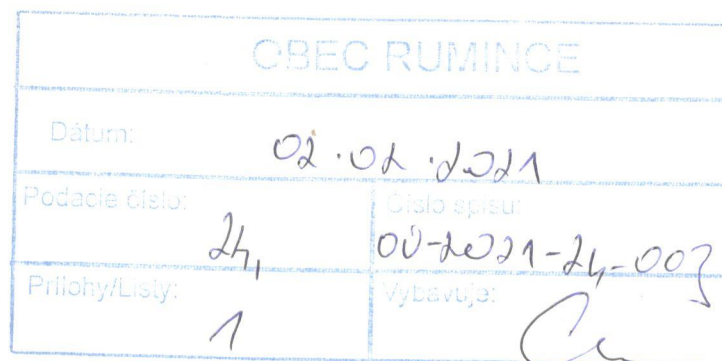 OBEC RUMINCE
Dátum: 02.02.2021
Podacie číslo: Číslo spisu:
24, OÚ-2021-24-003
Prílohy/Listy: Vybavuje:
1